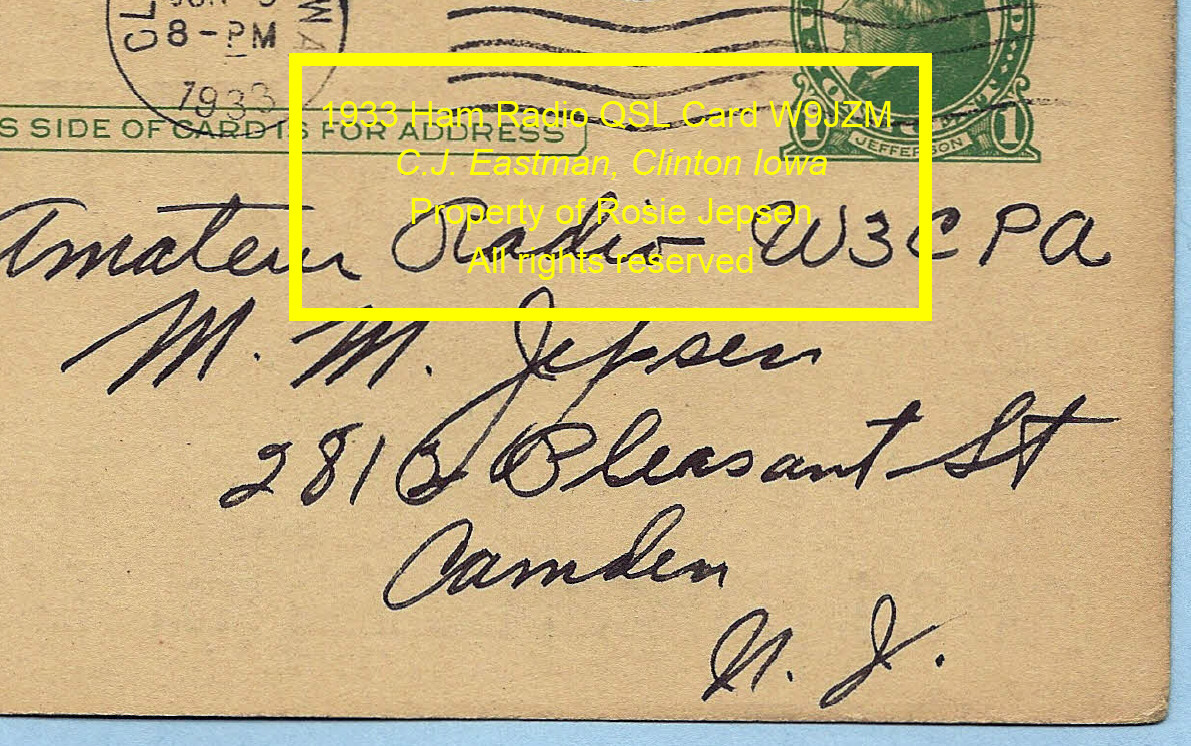 CL
8-PM
1933
WA
S SIDE OF CARD IS FOR ADDRESS
1 JEFFERSON 1
1933 Ham Radio QSL Card W9JZM
C.J. Eastman, Clinton Iowa
Property of Rosie Jepsen
All rights reserved
Amateur Radio W3CPA
M. M. Jepsen
2813 Pleasant St
Camden
N. J.